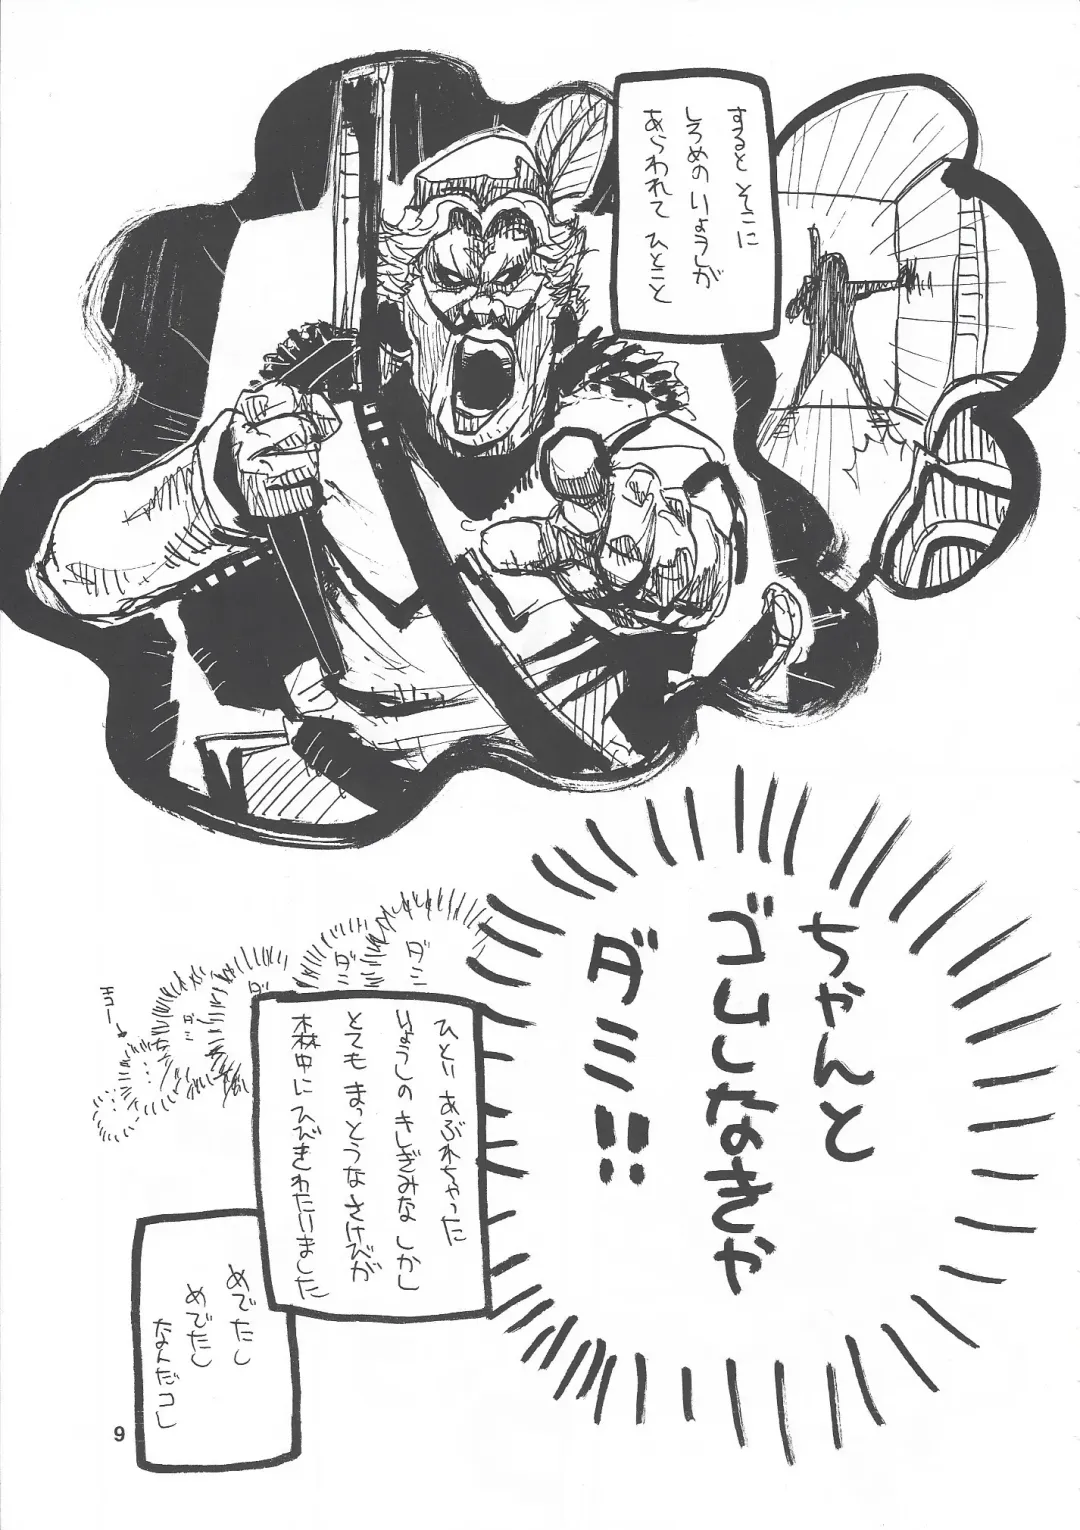 すると そこに
しろめの りょうしが
あらわれて ひとこと
ちゃんと
ゴムしなきゃ
ダミ!!
ダミ
ダミ
ダ
ダミ
エコー
ひとり あぶれちゃった
りょうしの きしぎみな しかし
とても まっとうな さけびが
森中に ひびきわたりました
めでたし
めでたし
なんだコレ
9